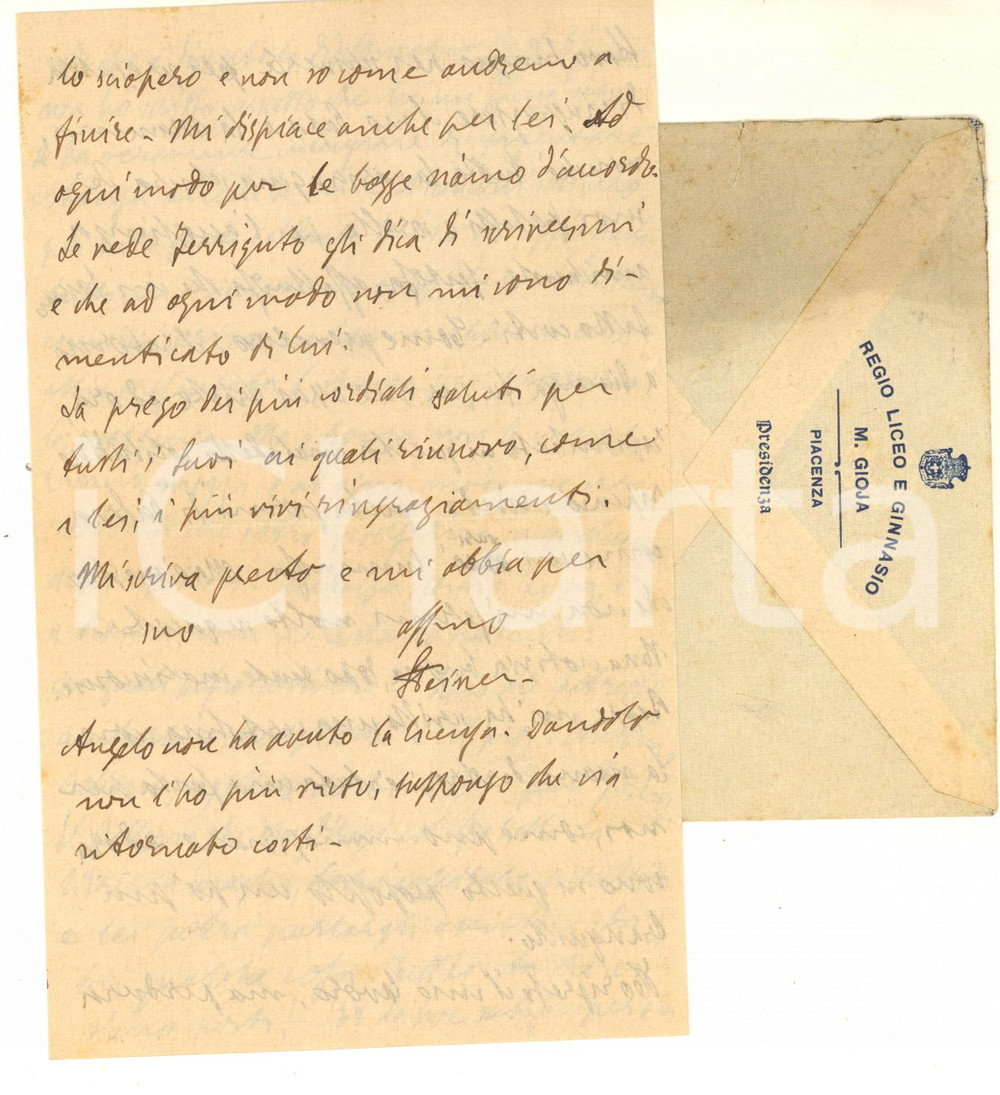 lo sciopero e non so come andremo a
finire - Mi dispiace anche per lei. Ad
ogni modo per le siamo d'accordo.
Se vede gli dica di scrivermi
e che ad ogni modo non mi sono di-
menticato di lui.
La prego dei più cordiali saluti per
tutti i suoi ai quali rinnovo, come
a lei, i più vivi ringraziamenti.
Mi scriva presto e mi abbia per
suo affmo
Steiner -
Angelo non ha avuto la licenza. Dandolo
non l'ho più visto, suppongo che sia
ritornato costì -
REGIO LICEO E GINNASIO
M. GIOJA
PIACENZA
Presidenza
iCharta